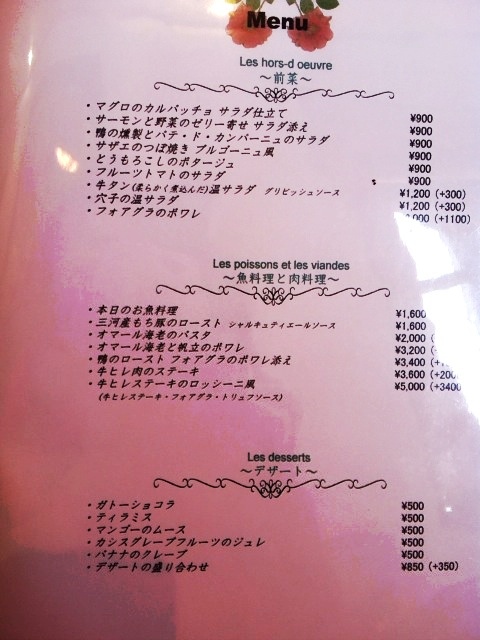 Menu
Les hors-d oeuvre
～前菜～
・マグロのカルパッチョ サラダ仕立て ¥900
・サーモンと野菜のゼリー寄せ サラダ添え ¥900
・鴨の燻製とパテ・ド・カンパーニュのサラダ ¥900
・サザエのつぼ焼き ブルゴーニュ風 ¥900
・とうもろこしのポタージュ ¥900
・フルーツトマトのサラダ ¥900
・牛タン(柔らかく煮込んだ)温サラダ グリビッシュソース ¥1,200 (+300)
・穴子の温サラダ ¥1,200 (+300)
・フォアグラのポワレ (+1100)
Les poissons et les viandes
～魚料理と肉料理～
・本日のお魚料理 ¥1,600
・三河産もち豚のロースト シャルキュティエールソース ¥1,600
・オマール海老のパスタ ¥2,000
・オマール海老と帆立のポワレ ¥3,200
・鴨のロースト フォアグラのポワレ添え ¥3,400
・牛ヒレ肉のステーキ ¥3,600
・牛ヒレステーキのロッシーニ風 ¥5,000 (+3400
(牛ヒレステーキ・フォアグラ・トリュフソース)
Les desserts
～デザート～
・ガトーショコラ ¥500
・ティラミス ¥500
・マンゴーのムース ¥500
・カシスグレープフルーツのジュレ ¥500
・バナナのクレープ ¥500
・デザートの盛り合わせ ¥850 (+350)